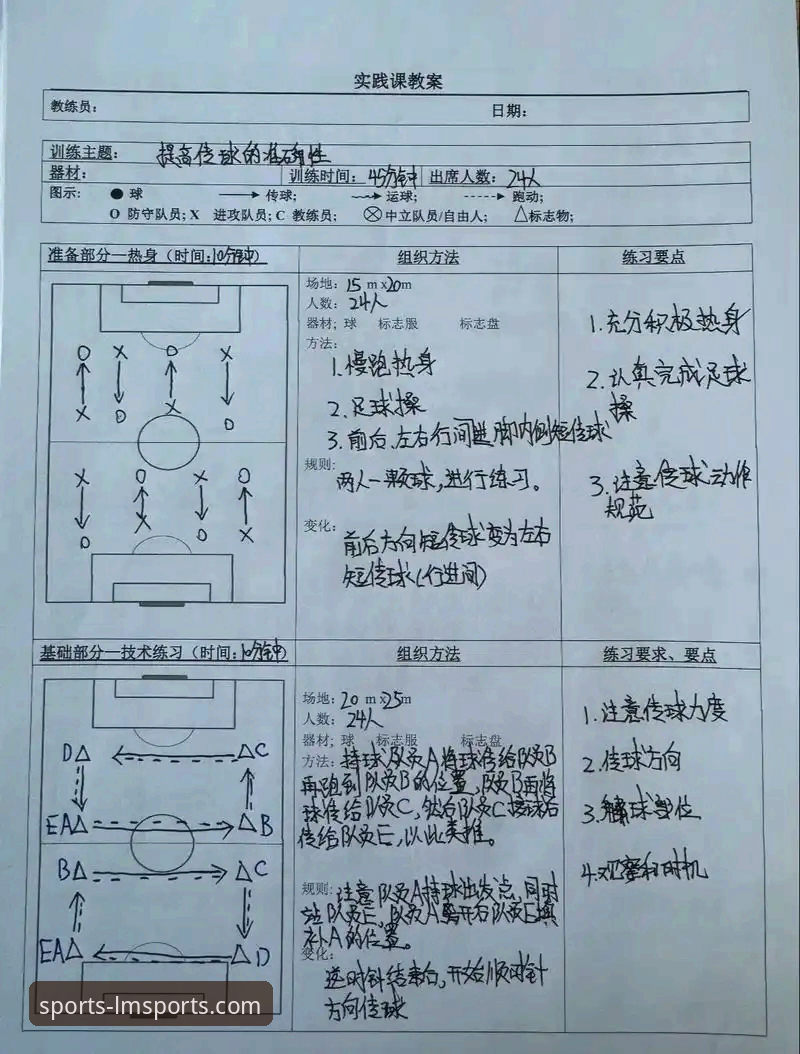 实践课教案
教练员: 日期:
训练主题: 提高传球的准确性
器材: 训练时间: 45分钟 出席人数: 24人
图示: ● 球 传球; 运球; 跑动;
O 防守队员; X 进攻队员; C 教练员; 中立队员/自由人; △标志物;
准备部分—热身（时间:10分钟） 组织方法 练习要点
场地: 15 m x20m
人数: 24人
器材; 球 标志服 标志盘
方法:
1.慢跑热身
2.足球操
3.前后、左右行间进脚内侧短传球
规则:
两人一颗球,进行练习。
变化:
前后方向短传球变为左右
短传球(行进间)
1.充分积极热身
2.认真完成足球
操
3.注意传球动作
规范
O X O X
X O X O
X O X O
O X O X
基础部分—技术练习（时间:10分钟） 组织方法 练习要求、要点
D△ △C
EA△ △B
B△ △C
EA△ △D
场地: 20 m x25m
人数: 24人
器材; 球 标志服 标志盘
方法: 持球队员A将球传给队员B
再跑到队员B的位置,队员B再将
球传给队员C,然后队员C接球后
传给队员E,以此类推。
规则: 注意队员A持球出发点,同时
站队员E,队员A离开后队员E填
补A的位置。
变化:
逆时针结束后,开始顺时针
方向传球
1.注意传球力度
2.传球方向
3.触球部位
4.观察和时机
sports-lmsports.com